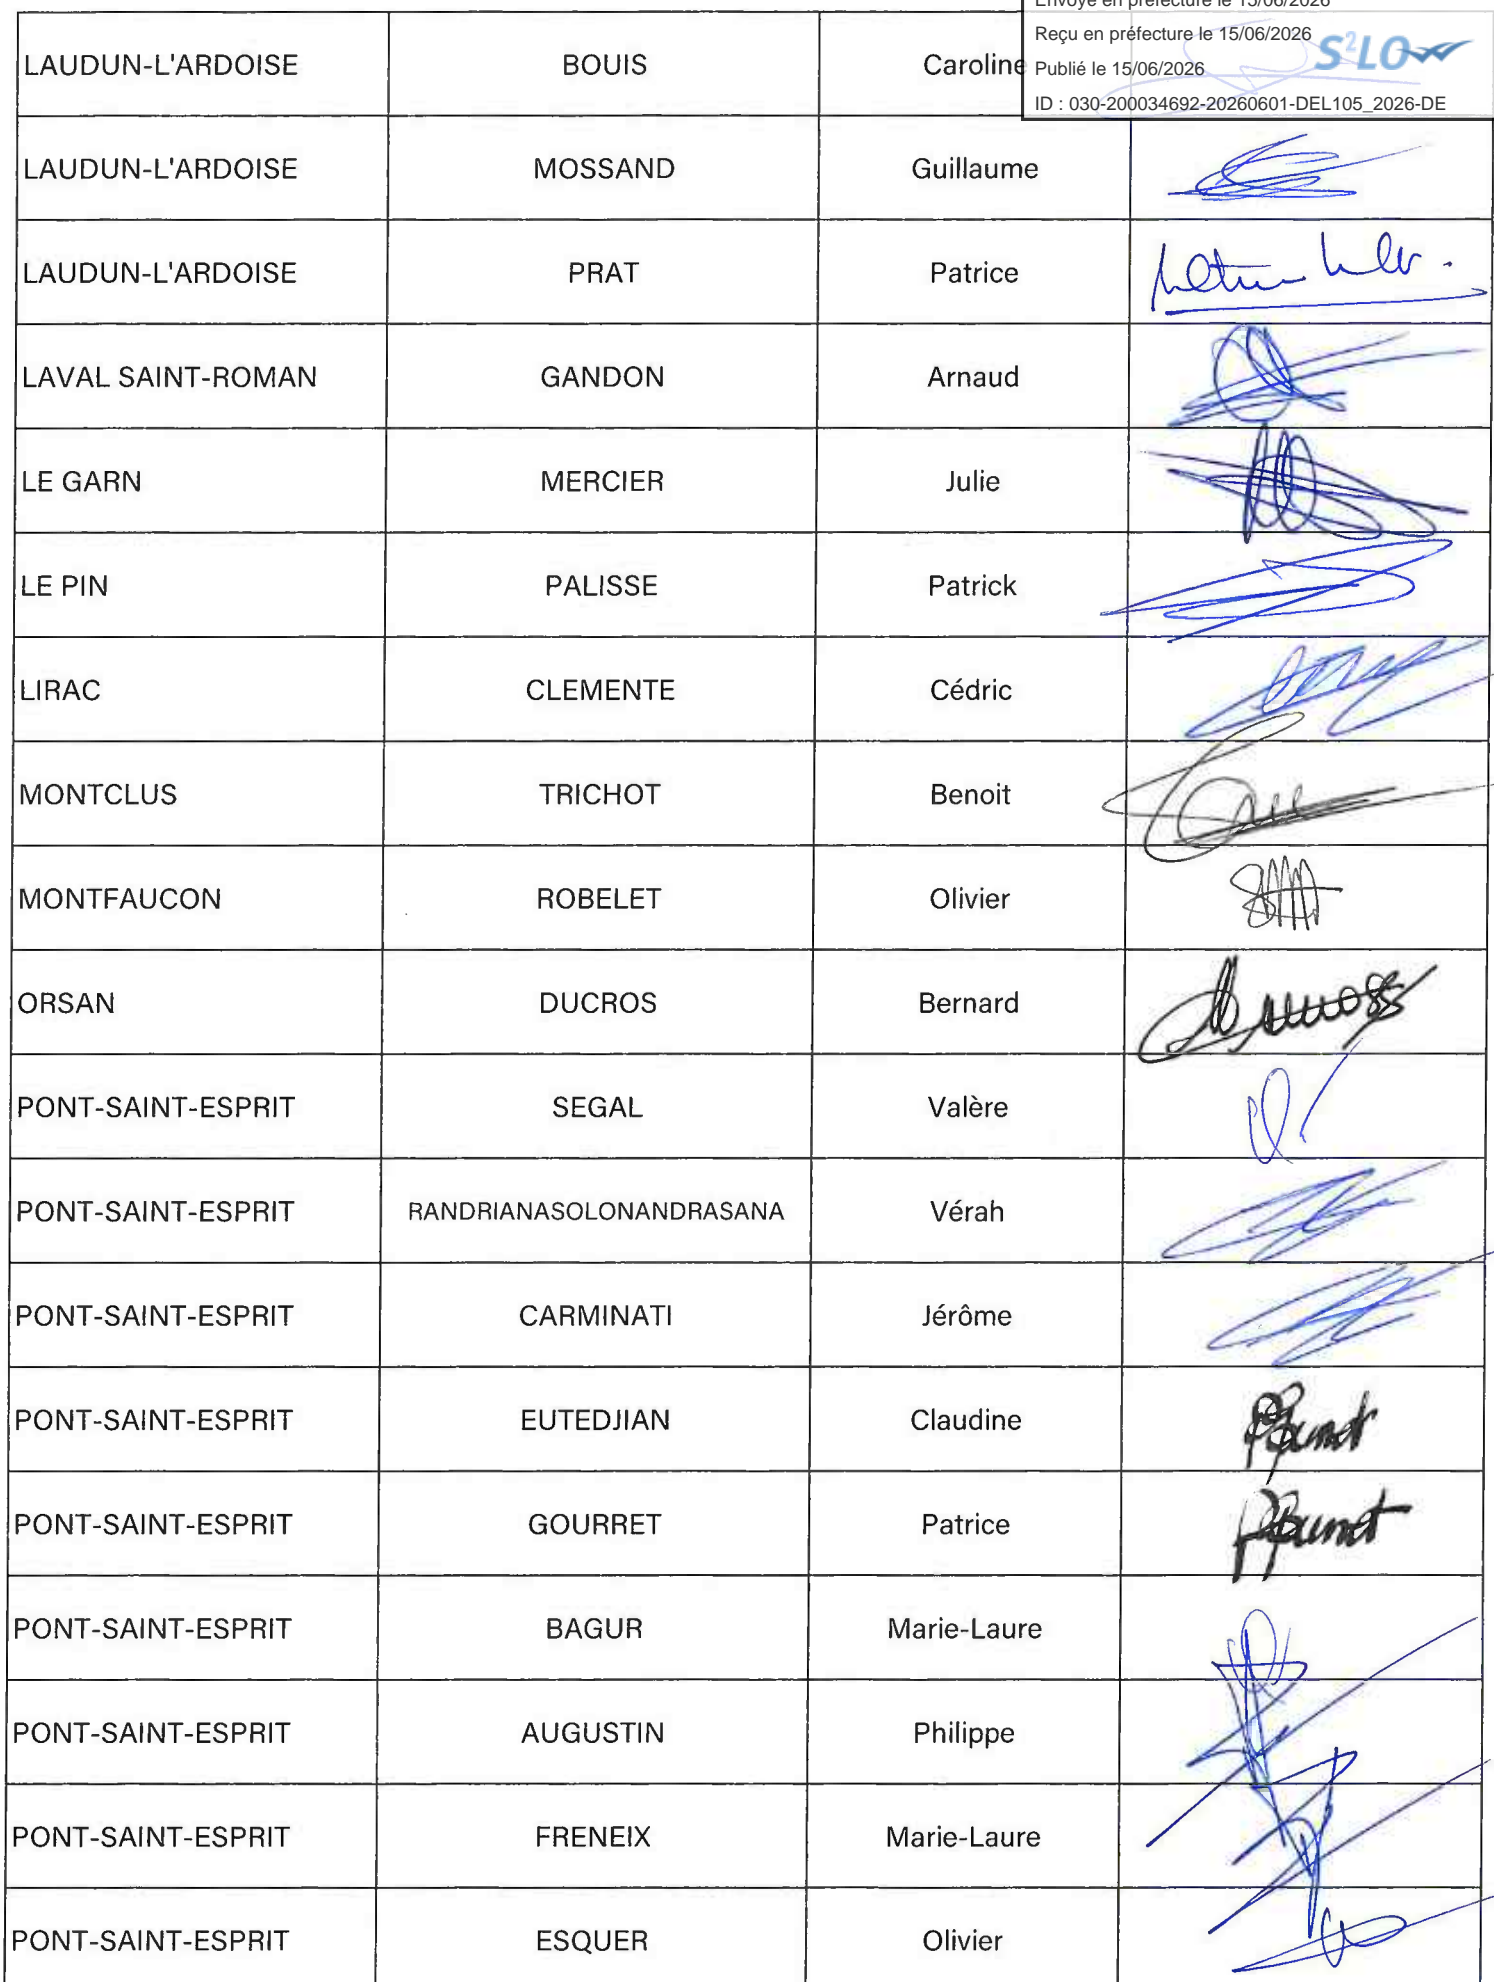 Envoyé en préfecture le 15/06/2026
Reçu en préfecture le 15/06/2026
S²LO
Publié le 15/06/2026
ID : 030-200034692-20260601-DEL105_2026-DE
LAUDUN-L'ARDOISE BOUIS Caroline
LAUDUN-L'ARDOISE MOSSAND Guillaume
LAUDUN-L'ARDOISE PRAT Patrice
LAVAL SAINT-ROMAN GANDON Arnaud
LE GARN MERCIER Julie
LE PIN PALISSE Patrick
LIRAC CLEMENTE Cédric
MONTCLUS TRICHOT Benoit
MONTFAUCON ROBELET Olivier
ORSAN DUCROS Bernard
PONT-SAINT-ESPRIT SEGAL Valère
PONT-SAINT-ESPRIT RANDRIANASOLONANDRASANA Vérah
PONT-SAINT-ESPRIT CARMINATI Jérôme
PONT-SAINT-ESPRIT EUTEDJIAN Claudine
PONT-SAINT-ESPRIT GOURRET Patrice
PONT-SAINT-ESPRIT BAGUR Marie-Laure
PONT-SAINT-ESPRIT AUGUSTIN Philippe
PONT-SAINT-ESPRIT FRENEIX Marie-Laure
PONT-SAINT-ESPRIT ESQUER Olivier